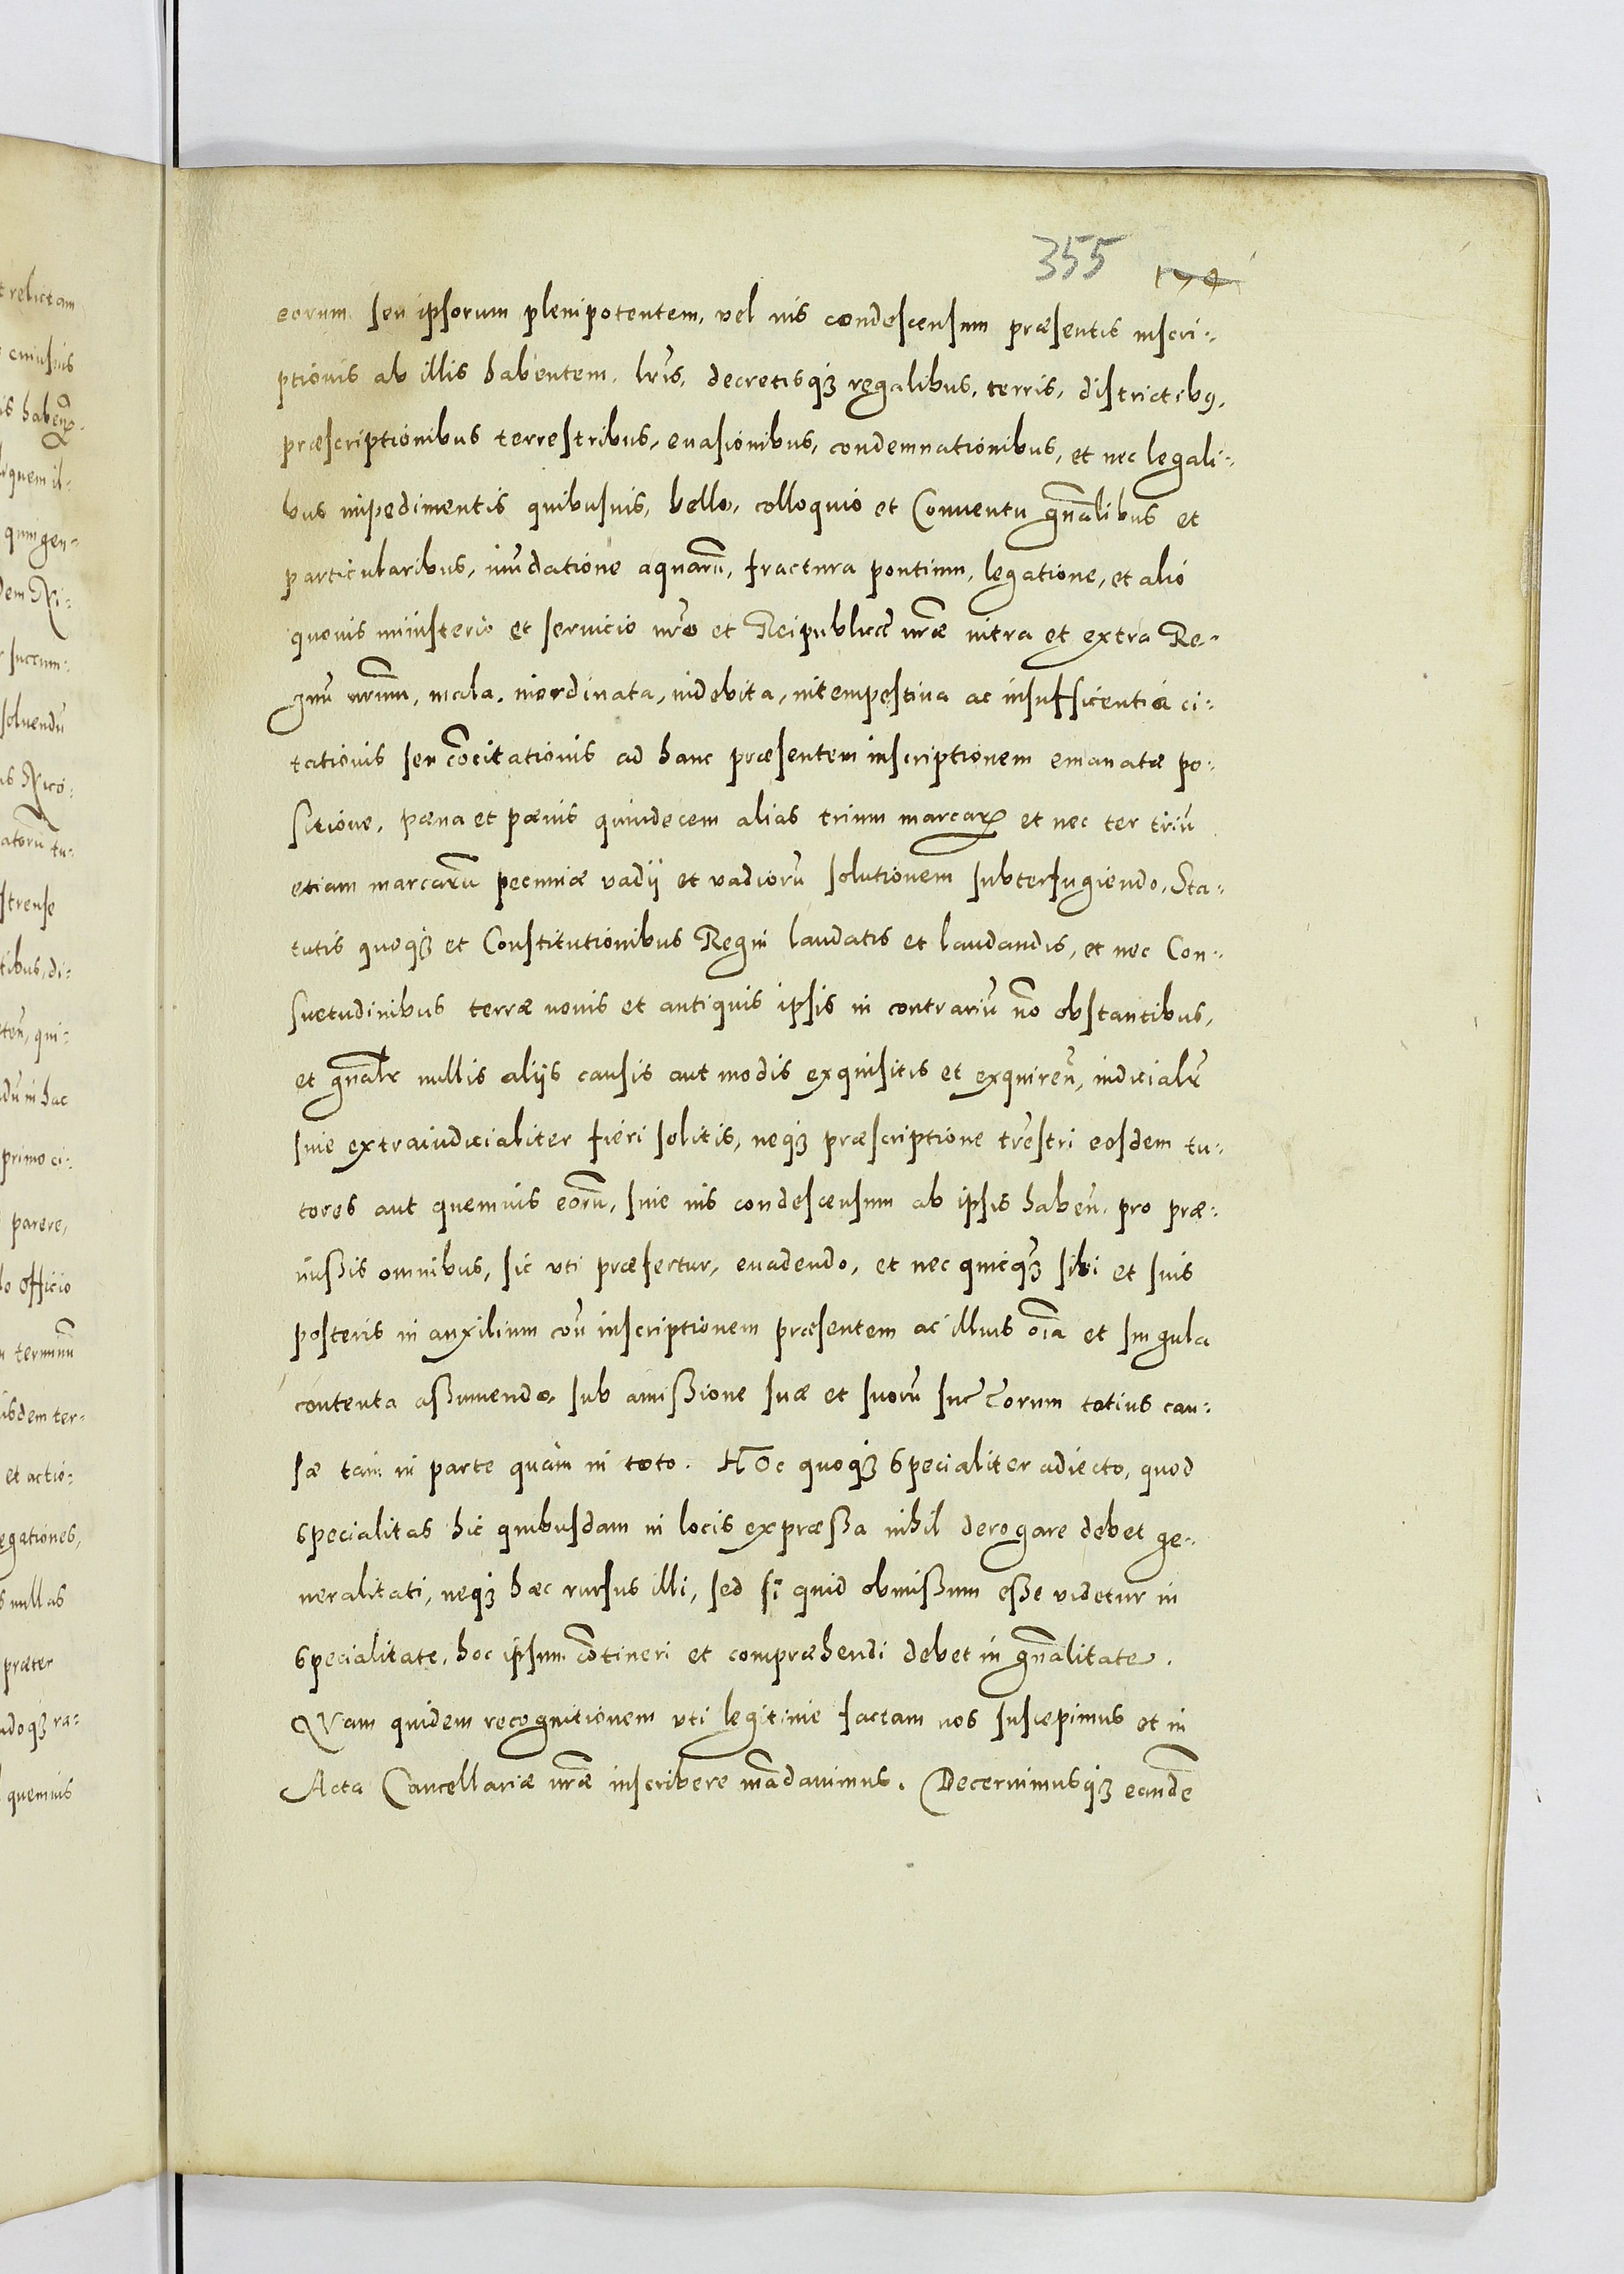 355
eorum seu ipsorum plenipotentem, vel ius condescensum præsentis inscri-
ptionis ab illis habentem, lr̃is, decretisq́ꝫ regalibus, terris, districtibꝯ,
præscriptionibus terrestribus, euasionibus, condemnationibus, et nec legali-
bus impedimentis quibusuis, bello, colloquio et Conuentu gñalibus et
particularibus, inũdatione aquarũ, fractura pontium, legatione, et alio
quouis ministerio et seruicio nr̃o et Reipublicæ nr̃æ intra et extra Re-
gnũ nr̃um, mala, inordinata, indebita, intempestiua ac insufficientia ci-
tationis seu cõcitationis ad hanc præsentem inscriptionem emanatæ po-
sitione, pæna et pænis quindecem alias trium marcaꝝ et nec ter triũ
etiam marcarũ pecuniæ vadij et vadiorũ solutionem subterfugiendo, Sta-
tutis quoq́ꝫ et Constitutionibus Regni laudatis et laudandis, et nec Con-
suetudinibus terræ nouis et antiquis ipsis in contrariũ nõ obstantibus,
et gñalr̃ nullis alijs causis aut modis exquisitis et exquireñ, iudicialr̃
siue extraiudicialiter fieri solitis, neq́ꝫ præscriptione tr̃estri eosdem tu-
tores aut quemuis eorũ, siue ius condescensum ab ipsis habeñ. pro præ-
missis omnibus, sic vti præfertur, euadendo, et nec quicq̃ꝫ sibi et suis
posteris in auxilium coñ inscriptionem præsentem ac illius oĩa et singula
contenta assumendo, sub amissione suæ et suorũ succ̃orum totius cau-
sæ tam in parte quàm in toto. HOc quoq́ꝫ specialiter adiecto, quod
specialitas hic quibusdam in locis expræssa nihil derogare debet ge-
neralitati, neq́ꝫ hæc rursus illi, sed si quid obmissum esse videtur in
specialitate, hoc ipsum cõtineri et compræhendi debet in gñalitate.
QVam quidem recognitionem vti legitime factam nos suscepimus et in
Acta Cancellariæ nr̃æ inscribere mãdauimus. Decernimusq́ꝫ eandẽ